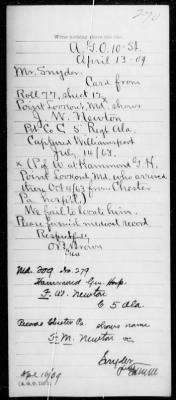 270
Write nothing above this line.
A.G.O. 10-St.
April 13-09
Mr. Snyder.
Card from
Roll 77, sheet 17
Point Lookout, Md. shows
J. W. Newton
Pvt Co C 5" Regt Ala.
Captured Williamsport
July 14/63.
x (P.G. W. at Hammond G. H.
Point Lookout, Md, who arrived
there Oct 4/63 from Chester
Pa. hospital)
We fail to locate him.
Please furnish medical record
Respectfully,
Brown
Md. No. 279
Hammond Gen. Hosp.
J. W. Newton
C 5 Ala.
Records Chester Pa. shows name
J. M. Newton
Snyder
Apl 14/09
(A. G. O.